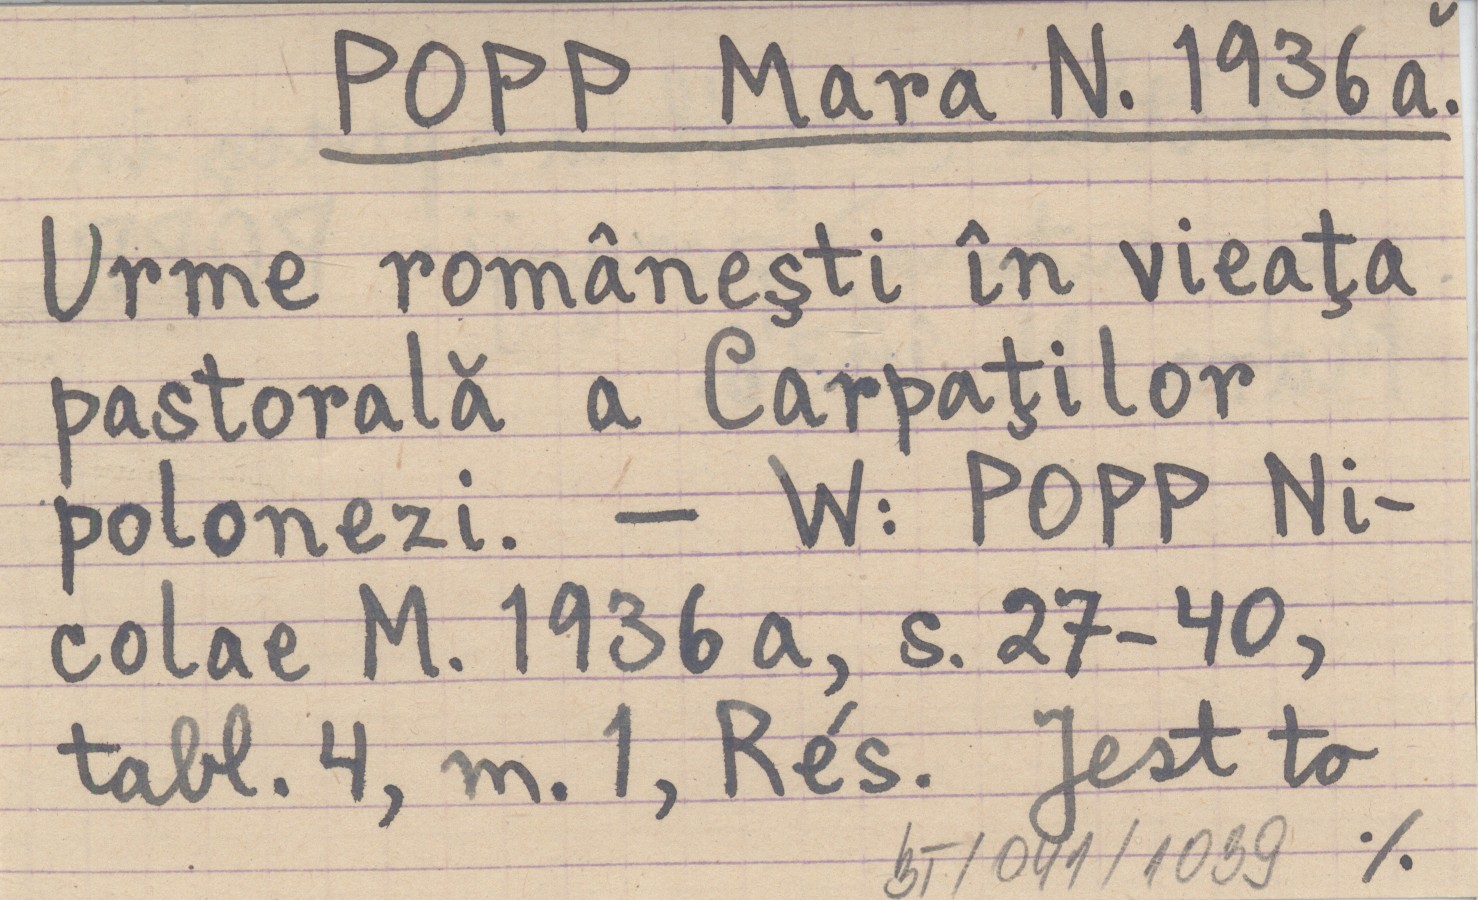 POPP Mara N. 1936 a.
Urme românești în vieața
pastorală a Carpaților
polonezi. — W: POPP Ni-
colae M. 1936 a, s. 27-40,
tabl. 4, m. 1, Rés. Jest to
BT/041/1039 ·/.